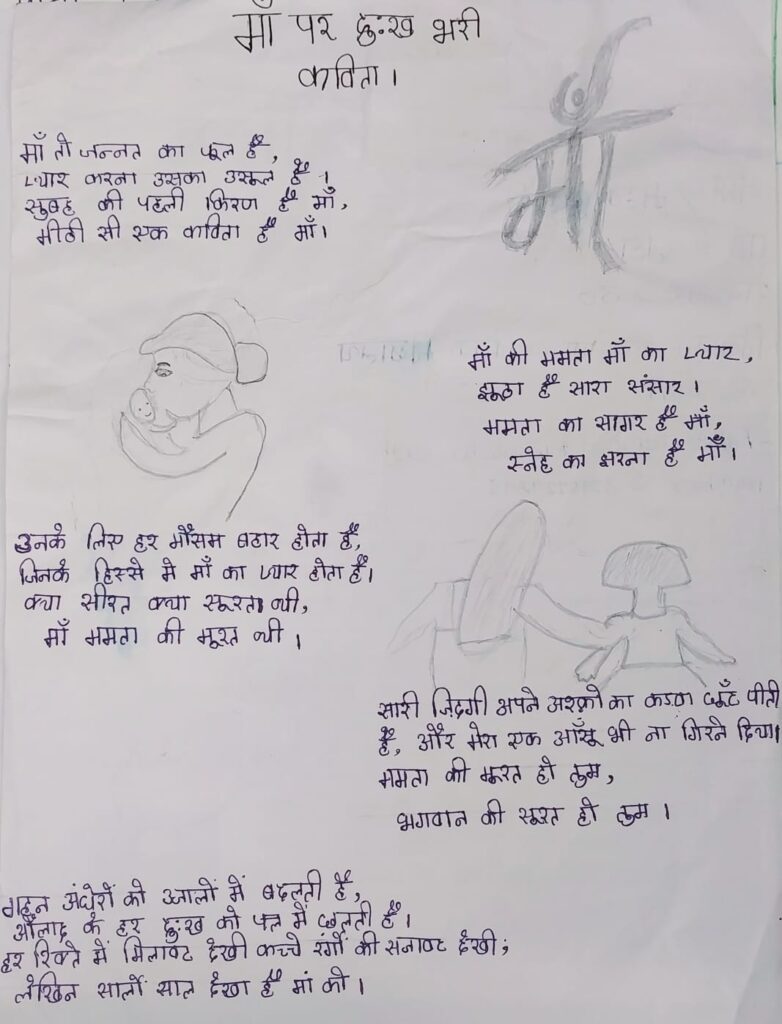 माँ पर दुःख भरी
कविता।
माँ
माँ तो जन्नत का फूल है,
प्यार करना उसका उसूल है।
सुबह की पहली किरण है माँ,
मीठी सी एक कविता है माँ।
माँ की ममता माँ का प्यार,
झूठा है सारा संसार।
ममता का सागर है माँ,
स्नेह का झरना है माँ।
उनके लिए हर मौसम बहार होता है,
जिनके हिस्से मे माँ का प्यार होता है।
क्या सीरत क्या सूरत थी,
माँ ममता की मूरत थी।
सारी ज़िदगी अपने अश्क़ो का कड़वा घूँट पीती
है, और मेरा एक आँसू भी ना गिरने दिया।
ममता की मूरत हो तुम,
भगवान की सूरत हो तुम।
गहन अंधेरों को उजालों में बदलती है,
औलाद के हर दुःख को पल में छलती है।
हर रिश्ते में मिलावट देखी कच्चे रंगों की सजावट देखी;
लेकिन सालों साल देखा है मां को।